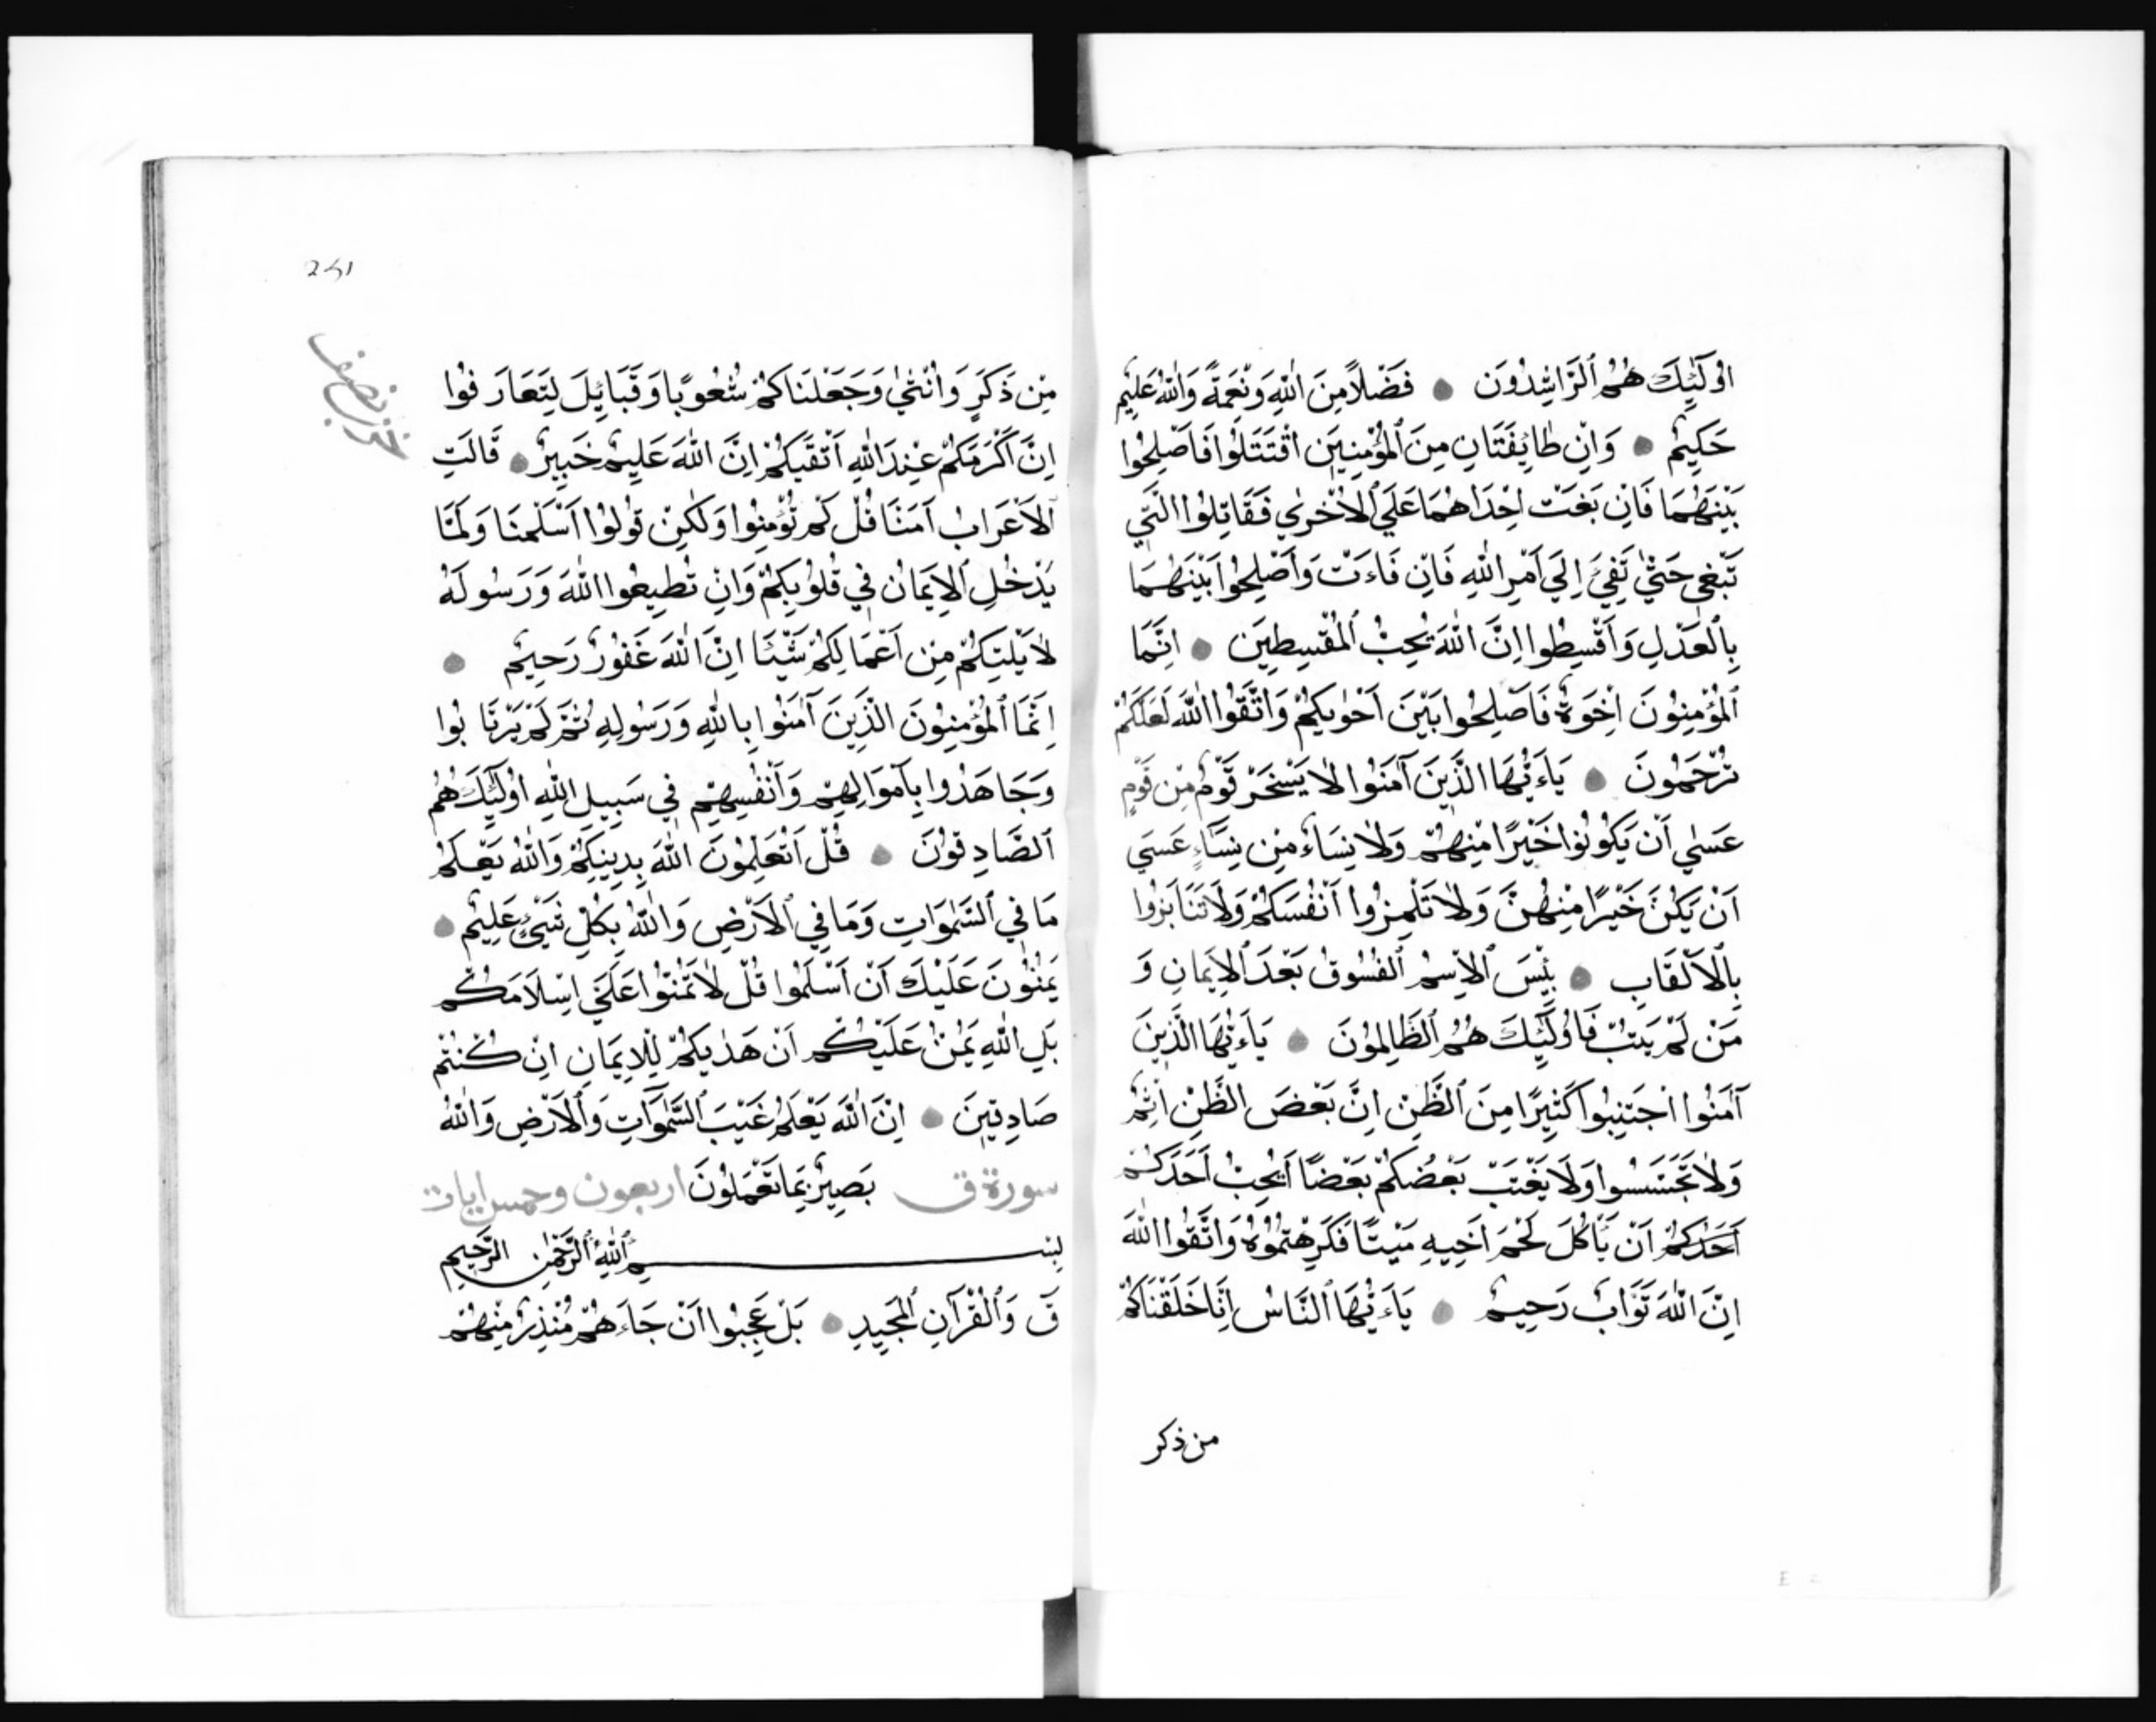 اُولَٰئِكَ هُمُ ٱلرَّاشِدُونَ ● فَضْلًا مِنَ اللّٰهِ وَنِعْمَةً وَاللّٰهُ عَلِيمٌ
حَكِيمٌ ● وَاِنْ طَايِفَتَانِ مِنَ ٱلْمُؤْمِنِينَ اقْتَتَلُوا فَاَصْلِحُوا
بَيْنَهُمَا فَاِنْ بَغَتْ اِحْدَاهُمَا عَلَي ٱلْاُخْرٰي فَقَاتِلُوا الَّتِي
تَبْغِي حَتّٰي تَفِئَ اِلَي اَمْرِ اللّٰهِ فَاِنْ فَاءَتْ وَاَصْلِحُوا بَيْنَهُمَا
بِٱلْعَدْلِ وَاَقْسِطُوا اِنَّ اللّٰهَ يُحِبُّ ٱلْمُقْسِطِينَ ● اِنَّمَا
ٱلْمُؤْمِنُونَ اِخْوَةٌ فَاَصْلِحُوا بَيْنَ اَخَوَيْكُمْ وَاتَّقُوا اللّٰهَ لَعَلَّكُمْ
تُرْحَمُونَ ● يَاءَيُّهَا الَّذِينَ آمَنُوا لَا يَسْخَرْ قَوْمٌ مِنْ قَوْمٍ
عَسٰي اَنْ يَكُونُوا خَيْرًا مِنْهُمْ وَلَا نِسَاءٌ مِنْ نِسَاءٍ عَسَي
اَنْ يَكُنَّ خَيْرًا مِنْهُنَّ وَلَا تَلْمِزُوا اَنْفُسَكُمْ وَلَا تَنَابَزُوا
بِٱلْاَلْقَابِ ● بِئْسَ ٱلْاِسْمُ ٱلْفُسُوقُ بَعْدَ ٱلْاِيمَانِ وَ
مَنْ لَمْ يَتُبْ فَاُولَٰئِكَ هُمُ ٱلظَّالِمُونَ ● يَاءَيُّهَا الَّذِينَ
آمَنُوا اجْتَنِبُوا كَثِيرًا مِنَ ٱلظَّنِّ اِنَّ بَعْضَ الظَّنِّ اِثْمٌ
وَلَا تَجَسَّسُوا وَلَا يَغْتَبْ بَعْضُكُمْ بَعْضًا اَيُحِبُّ اَحَدَكُمْ
اَحَدُكُمْ اَنْ يَأْكُلَ لَحْمَ اَخِيهِ مَيْتًا فَكَرِهْتُمُوهُ وَاتَّقُوا اللّٰهَ
اِنَّ اللّٰهَ تَوَّابٌ رَحِيمٌ ● يَاءَيُّهَا ٱلنَّاسُ اِنَّا خَلَقْنَاكُمْ
من ذكر
241
حزب نصف
مِنْ ذَكَرٍ وَاُنْثٰي وَجَعَلْنَاكُمْ شُعُوبًا وَقَبَائِلَ لِتَعَارَفُوا
اِنَّ اَكْرَمَكُمْ عِنْدَ اللّٰهِ اَتْقَيكُمْ اِنَّ اللّٰهَ عَلِيمٌ خَبِيرٌ ● قَالَتِ
ٱلْاَعْرَابُ آمَنَّا قُلْ لَمْ تُؤْمِنُوا وَلٰكِنْ قُولُوا اَسْلَمْنَا وَلَمَّا
يَدْخُلِ ٱلْاِيمَانُ فِي قُلُوبِكُمْ وَاِنْ تُطِيعُوا اللّٰهَ وَرَسُولَهُ
لَا يَلِتْكُمْ مِنْ اَعْمَالِكُمْ شَيْئًا اِنَّ اللّٰهَ غَفُورٌ رَحِيمٌ ●
اِنَّمَا ٱلْمُؤْمِنُونَ الَّذِينَ آمَنُوا بِاللّٰهِ وَرَسُولِهِ ثُمَّ لَمْ يَرْتَابُوا
وَجَاهَدُوا بِاَمْوَالِهِمْ وَاَنْفُسِهِمْ فِي سَبِيلِ اللّٰهِ اُولَٰئِكَ هُمُ
ٱلصَّادِقُونَ ● قُلْ اَتُعَلِّمُونَ اللّٰهَ بِدِينِكُمْ وَاللّٰهُ يَعْلَمُ
مَا فِي ٱلسَّمٰوَاتِ وَمَا فِي ٱلْاَرْضِ وَاللّٰهُ بِكُلِّ شَيْءٍ عَلِيمٌ ●
يَمُنُّونَ عَلَيْكَ اَنْ اَسْلَمُوا قُلْ لَا تَمُنُّوا عَلَيَّ اِسْلَامَكُمْ
بَلِ اللّٰهِ يَمُنُّ عَلَيْكُمْ اَنْ هَدٰيكُمْ لِلْاِيمَانِ اِنْ كُنْتُمْ
صَادِقِينَ ● اِنَّ اللّٰهَ يَعْلَمُ غَيْبَ ٱلسَّمٰوَاتِ وَٱلْاَرْضِ وَاللّٰهُ
سورة ق بَصِيرٌ بِمَا تَعْمَلُونَ اربعون وخمس ايات
بِسْمِ ٱللّٰهِ ٱلرَّحْمٰنِ الرَّحِيمِ
قٓ وَٱلْقُرْآنِ ٱلْمَجِيدِ ● بَلْ عَجِبُوا اَنْ جَاءَهُمْ مُنْذِرٌ مِنْهُمْ